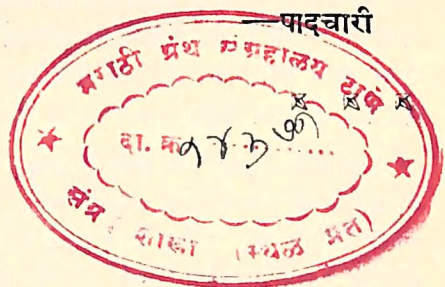 —पादचारी
मराठी ग्रंथ संग्रहालय ठाणे
दा. क्र
शाखा (स्थळ प्रत)